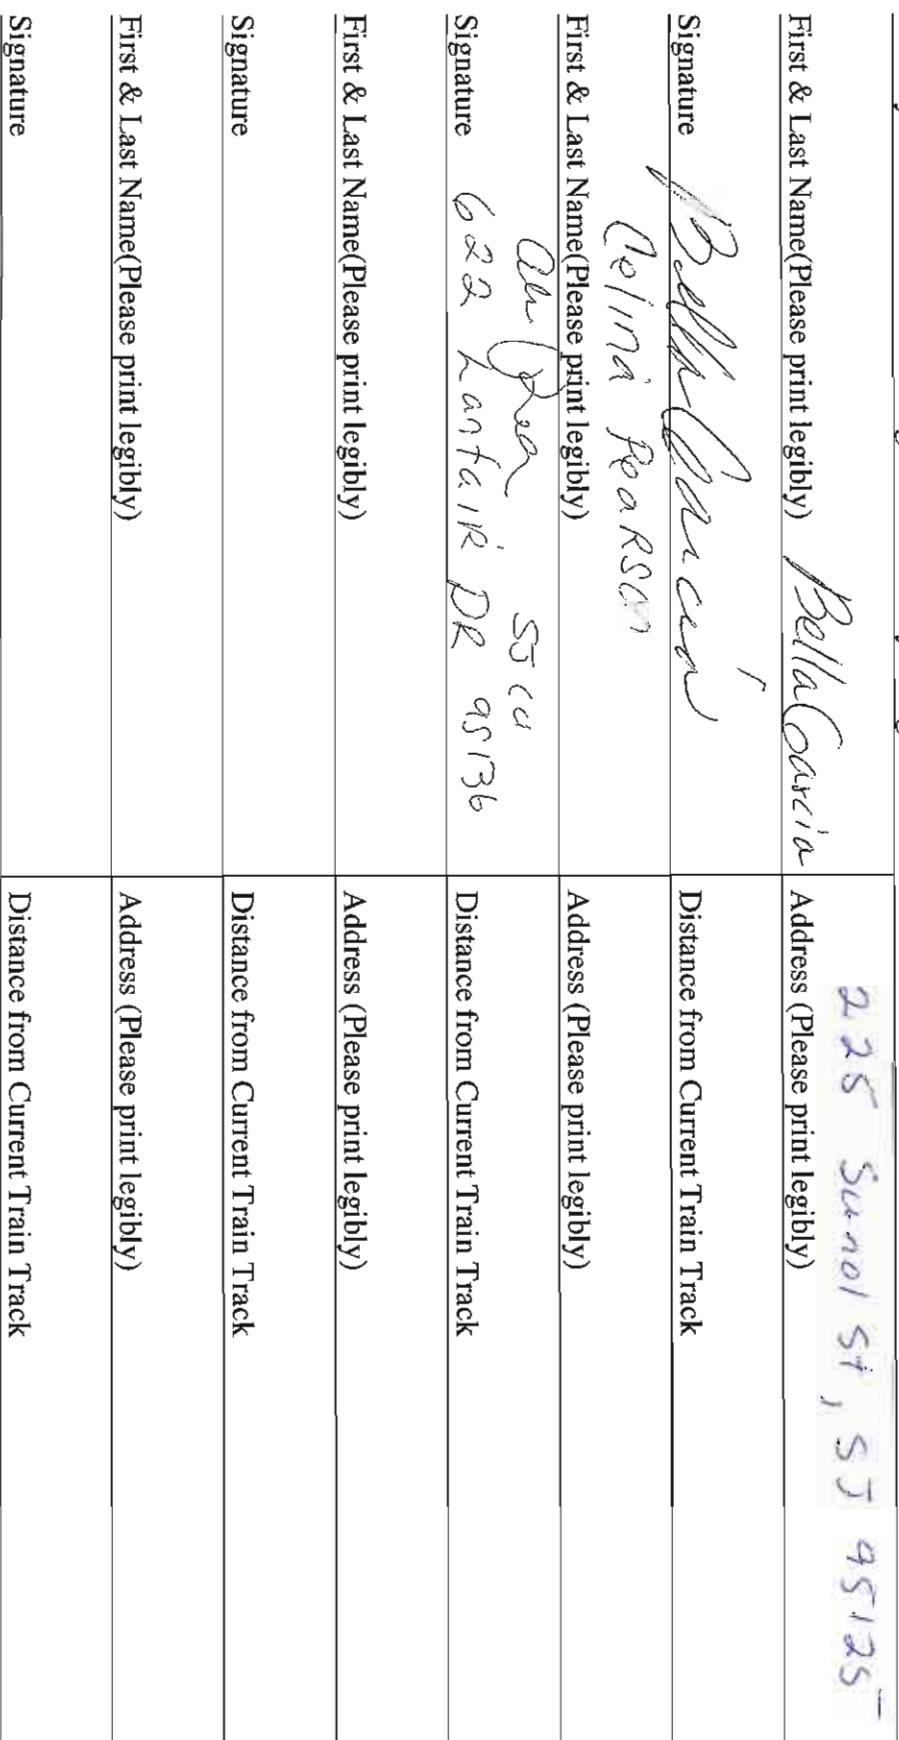 225 Sunol St, SJ 95125
First & Last Name(Please print legibly) Bella Garcia Address (Please print legibly)
Signature Bella Garcia Distance from Current Train Track
Celina PeaRson
First & Last Name(Please print legibly) Address (Please print legibly)
SJ ca
Signature 622 Lanfair DR 95136 Distance from Current Train Track
First & Last Name(Please print legibly) Address (Please print legibly)
Signature Distance from Current Train Track
First & Last Name(Please print legibly) Address (Please print legibly)
Signature Distance from Current Train Track